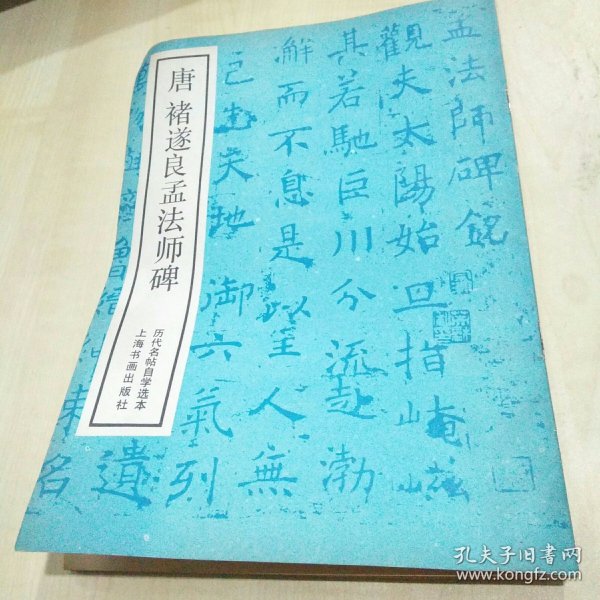 唐 褚遂良孟法师碑
历代名帖自学选本
上海书画出版社
孟法師碑銘
觀夫太陽始旦指崦嵫
其若馳巨川分流赴渤
澥而不息是以至人無
己生天地御六氣列
遺
名
孔夫子旧书网
www.kongfz.com